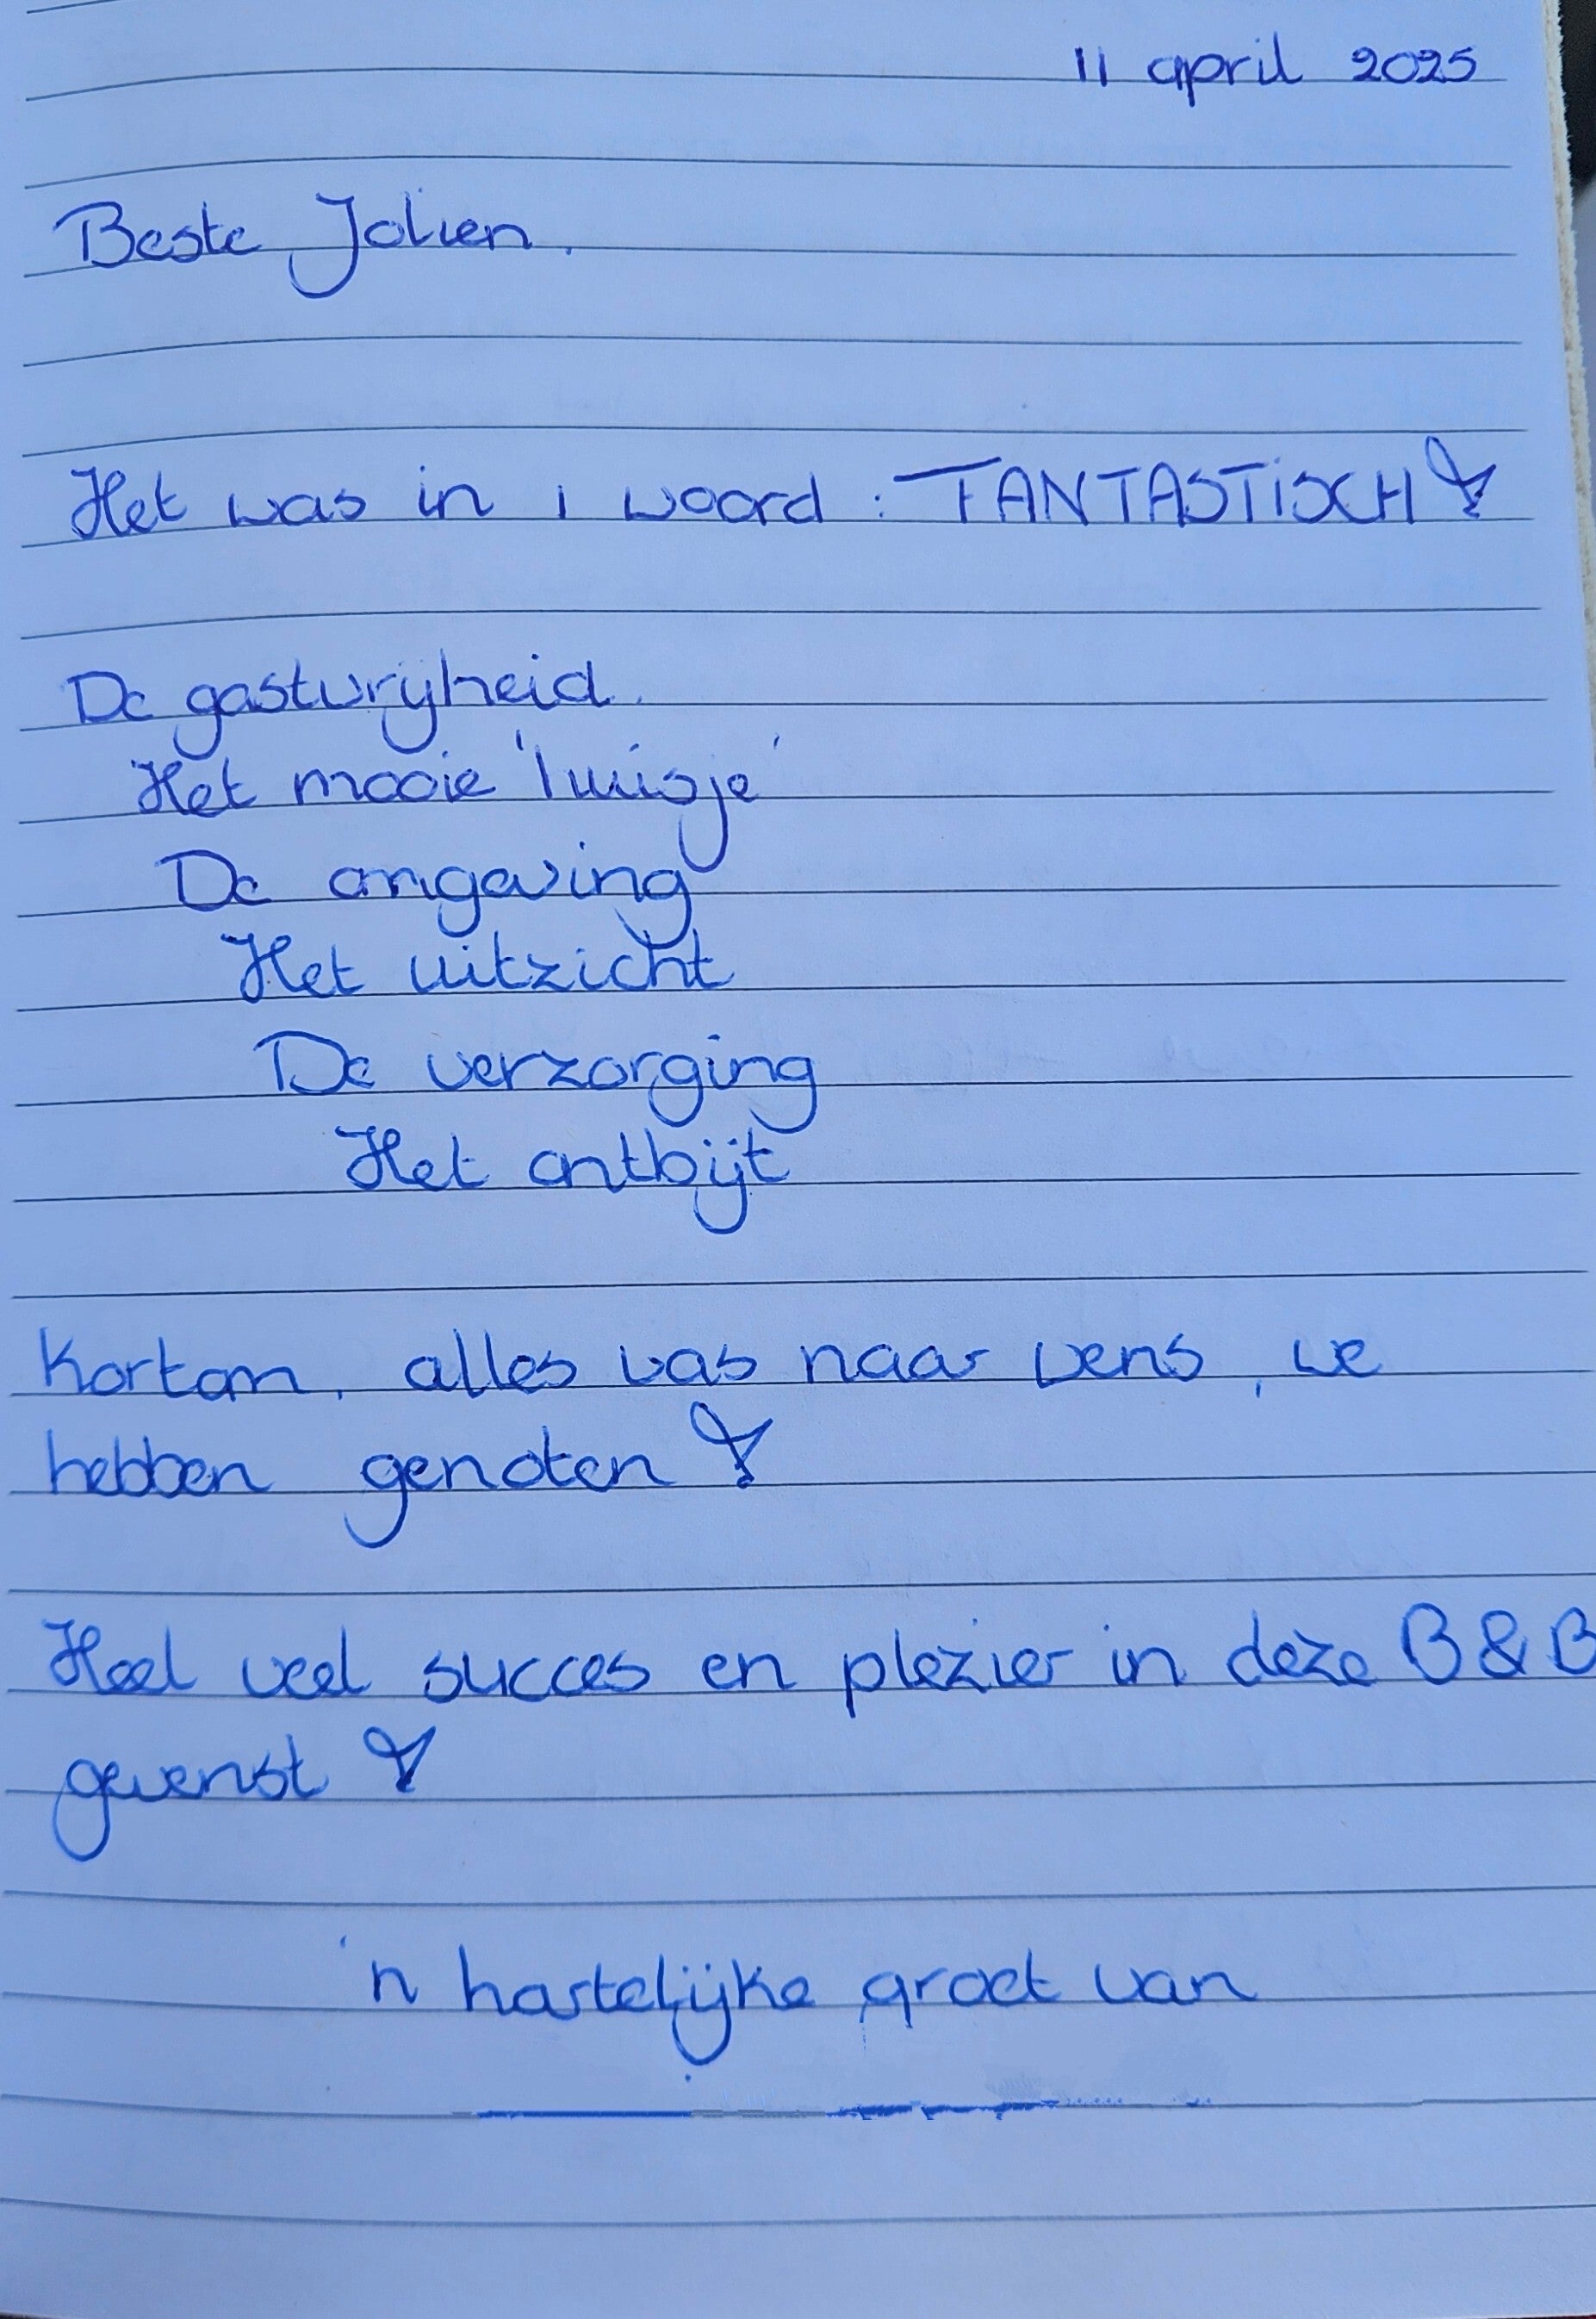 11 april 2025
Beste Jolien,
Het was in 1 woord : FANTASTISCH!
De gastvrijheid.
Het mooie 'huisje'
De omgeving
Het uitzicht
De verzorging
Het ontbijt
Kortom, alles was naar wens, we
hebben genoten!
Heel veel succes en plezier in deze B&B
gewenst!
'n hartelijke groet van